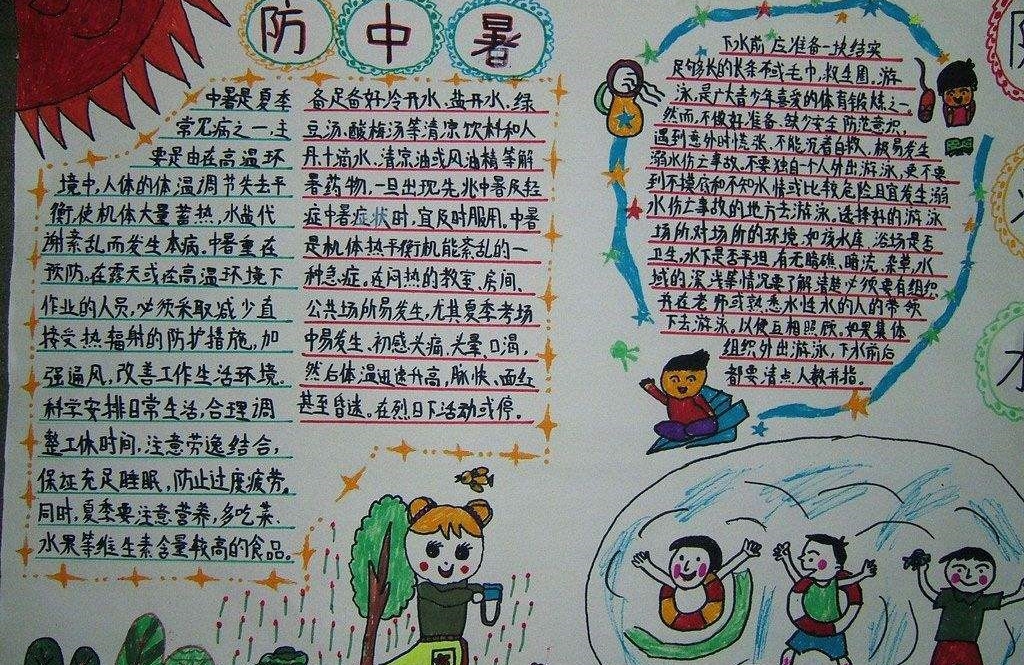 防中暑
中暑是夏季
常见病之一,主
要是由在高温环
境中,人体的体温调节失去平
衡,使机体大量蓄热,水盐代
谢紊乱而发生本病。中暑重在
预防,在露天或在高温环境下
作业的人员,必须采取减少直
接受热辐射的防护措施,加
强通风,改善工作生活环境.
科学安排日常生活,合理调
整工休时间,注意劳逸结合,
保证充足睡眠,防止过度疲劳,
同时,夏季要注意营养,多吃菜
水果等维生素含量较高的食品。
备足备好冷开水、盐开水、绿
豆汤、酸梅汤等清凉饮料和人
丹十滴水、清凉油或风油精等解
暑药物,一旦出现先兆中暑及轻
症中暑症状时,宜及时服用,中暑
是机体热平衡机能紊乱的一
种急症。在闷热的教室、房间、
公共场所易发生,尤其夏季考场
中易发生、初感头痛、头晕、口渴,
然后体温迅速升高,脉快、面红
甚至昏迷。在烈日下活动或停。
下水前应准备一块结实
足够长的长条布或毛巾,救生圈,游
泳,是广大青少年喜爱的体育锻炼之一,
然而,不做好准备、缺少安全防范意识,
遇到意外时慌张、不能沉着自救、极易发生
溺水伤亡事故,不要独自一个人外出游泳,更不要
到不摸底和不知水情或比较危险且宜发生溺
水伤亡事故的地方去游泳,选择好的游泳
场所对场所的环境,如该水库、浴场是否
卫生,水下是否平坦,有无暗礁、暗流、杂草,水
域的深浅等情况要了解清楚必须要有组织
并在老师或熟悉水性水的人的带领
下去游泳,以便互相照顾。如果集体
组织外出游泳,下水前后
都要清点人数并指。
水